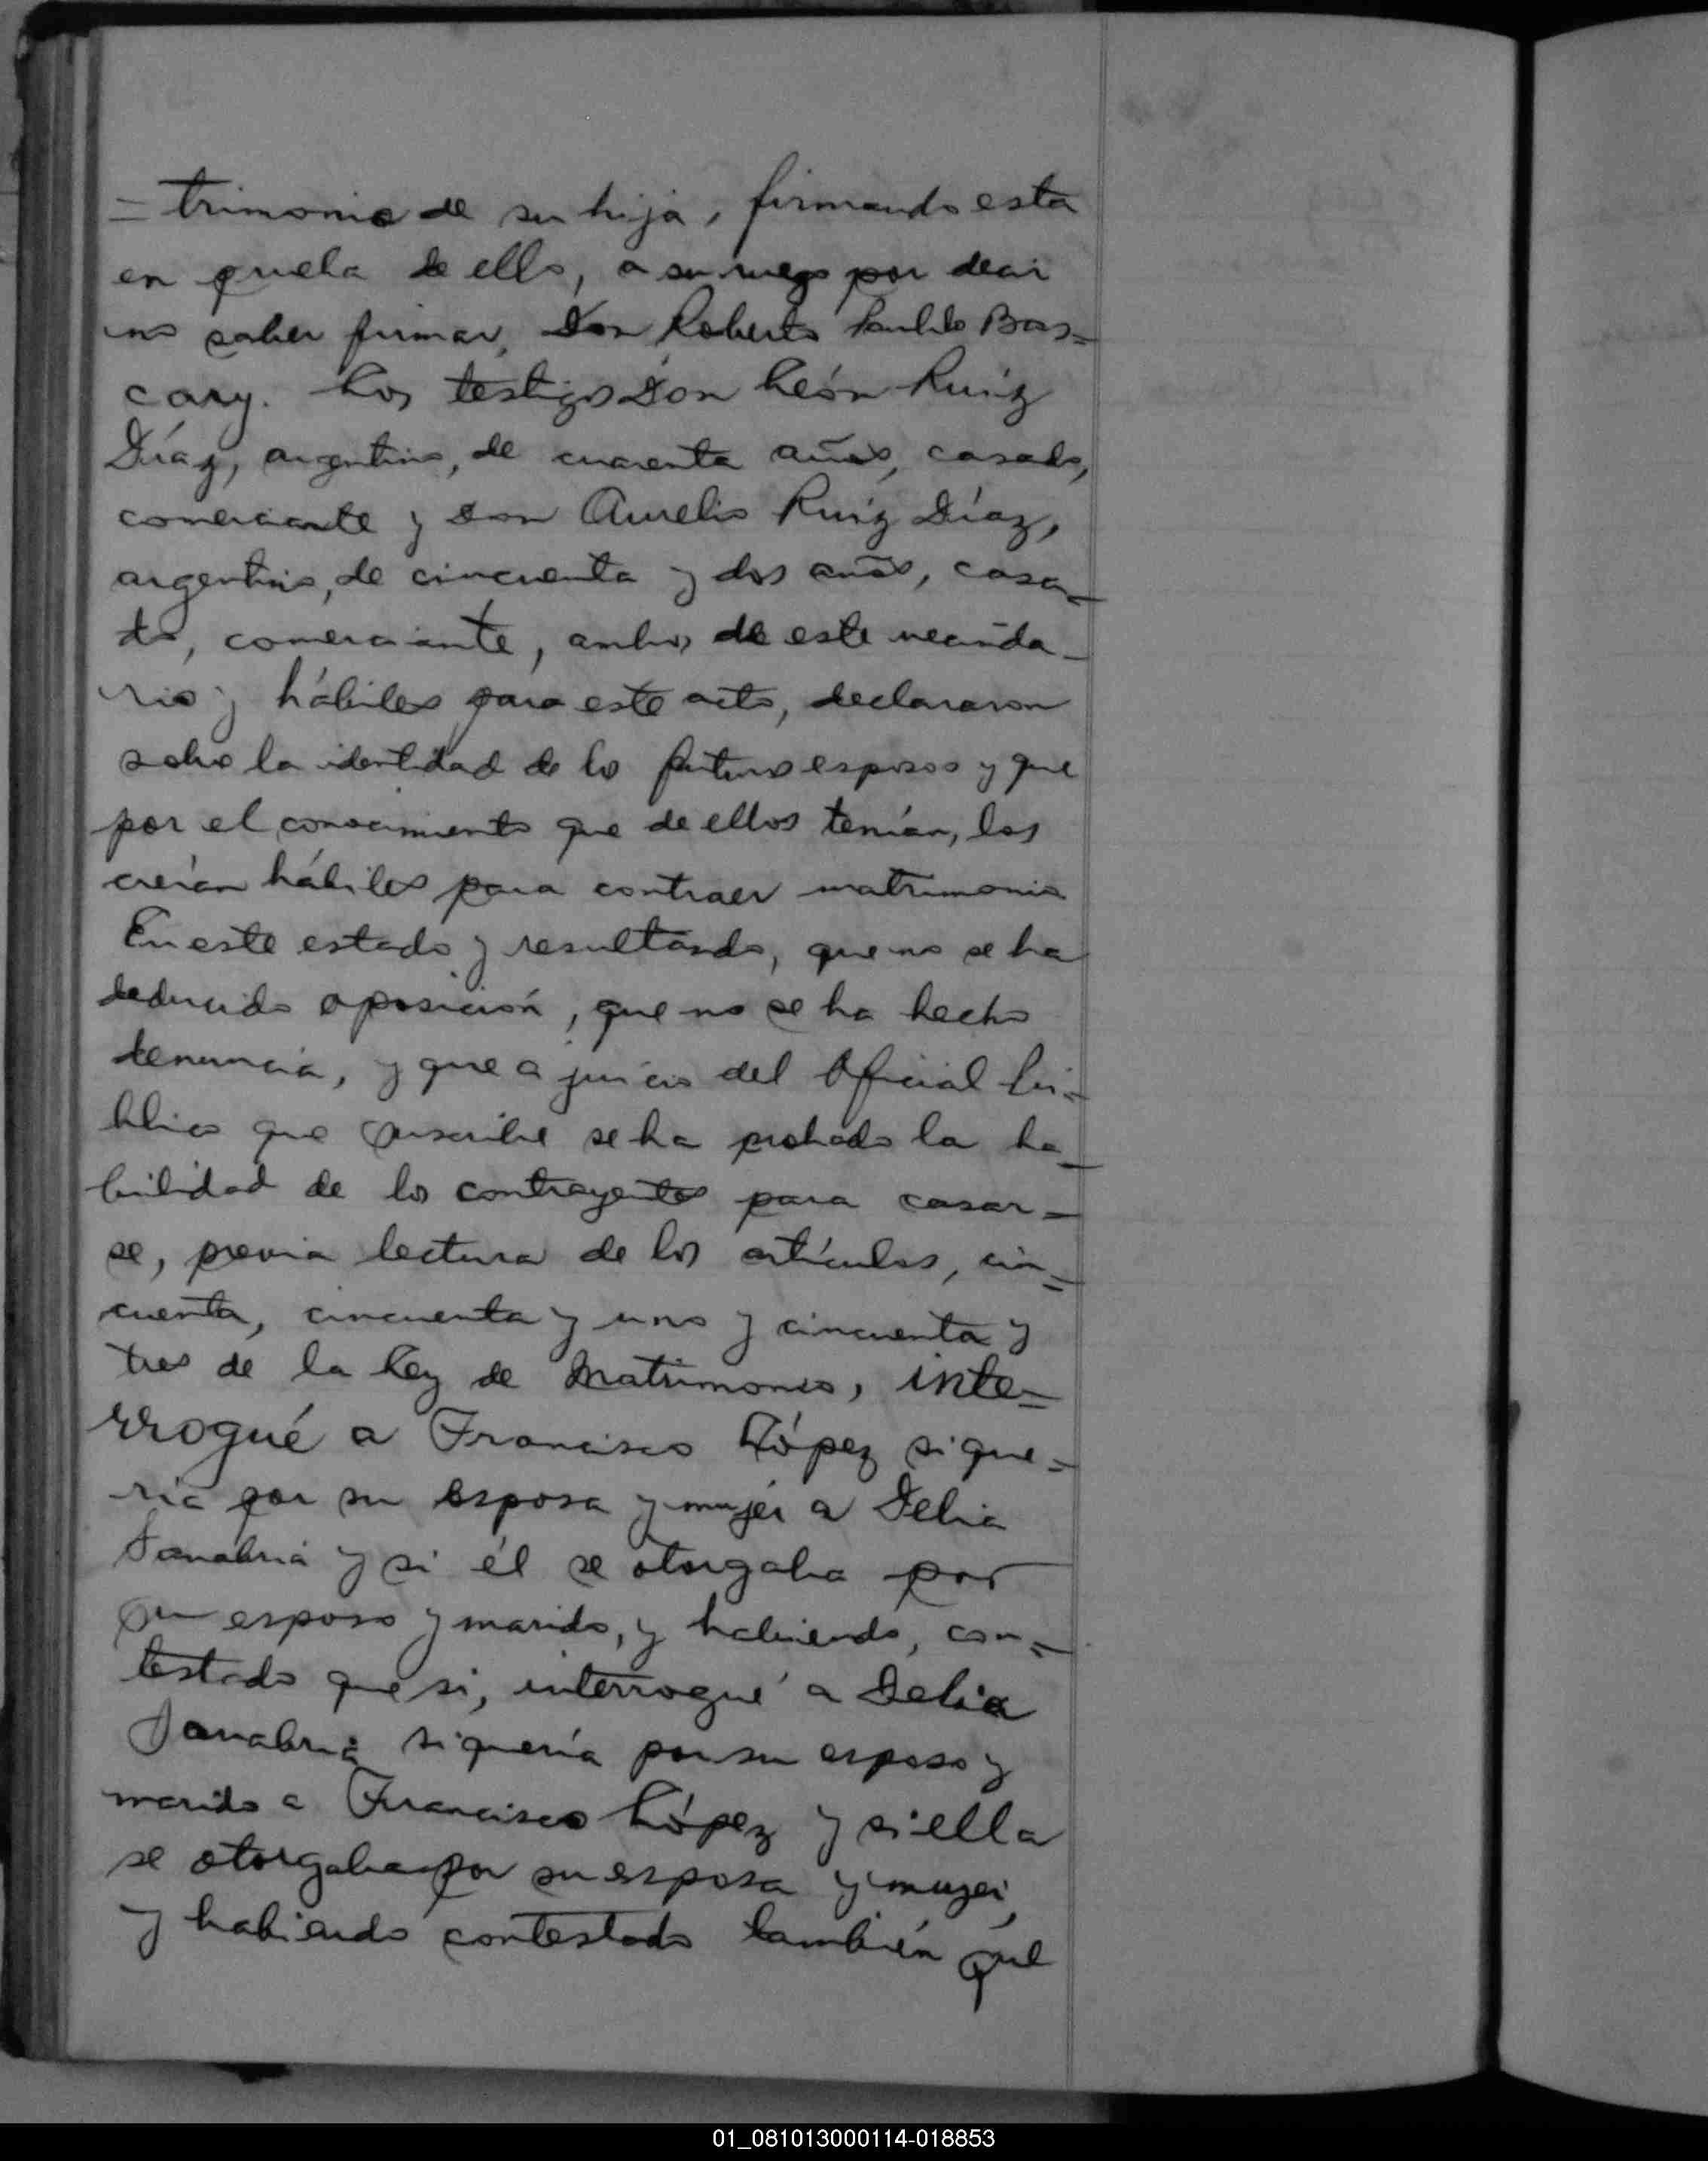 = trimonio de su hija, firmando esta
en prueba de ello, a su ruego por decir
no saber firmar, Don Roberto Pablo Bas=
cary. Los testigos Don León Ruiz
Díaz, argentino, de cuarenta años, casado,
comerciante y Don Aurelio Ruiz Díaz,
argentino, de cincuenta y dos años, casa_
do, comerciante, ambos de este vecinda_
rio y hábiles para este acto, declararon
sobre la identidad de los futuros esposos y que
por el conocimiento que de ellos tenían, los
creían hábiles para contraer matrimonio
En este estado y resultando, que no se ha
deducido oposición, que no se ha hecho
denuncia, y que a juicio del Oficial Pú=
blico que suscribe se ha probado la ha_
bilidad de los contrayentes para casar=
se, previa lectura de los artículos, cin=
cuenta, cincuenta y uno y cincuenta y
tres de la Ley de Matrimonio, inte=
rrogué a Francisco López si que=
ria por su esposa y mujer a Delia
Sanabria y si él se otorgaba por
su esposo y marido, y habiendo, con=
testado que si, interrogué a Delia
Sanabria si quería por su esposo y
marido a Francisco López y si ella
se otorgaba por su esposa y mujer,
y habiendo contestado también que
01_081013000114-018853